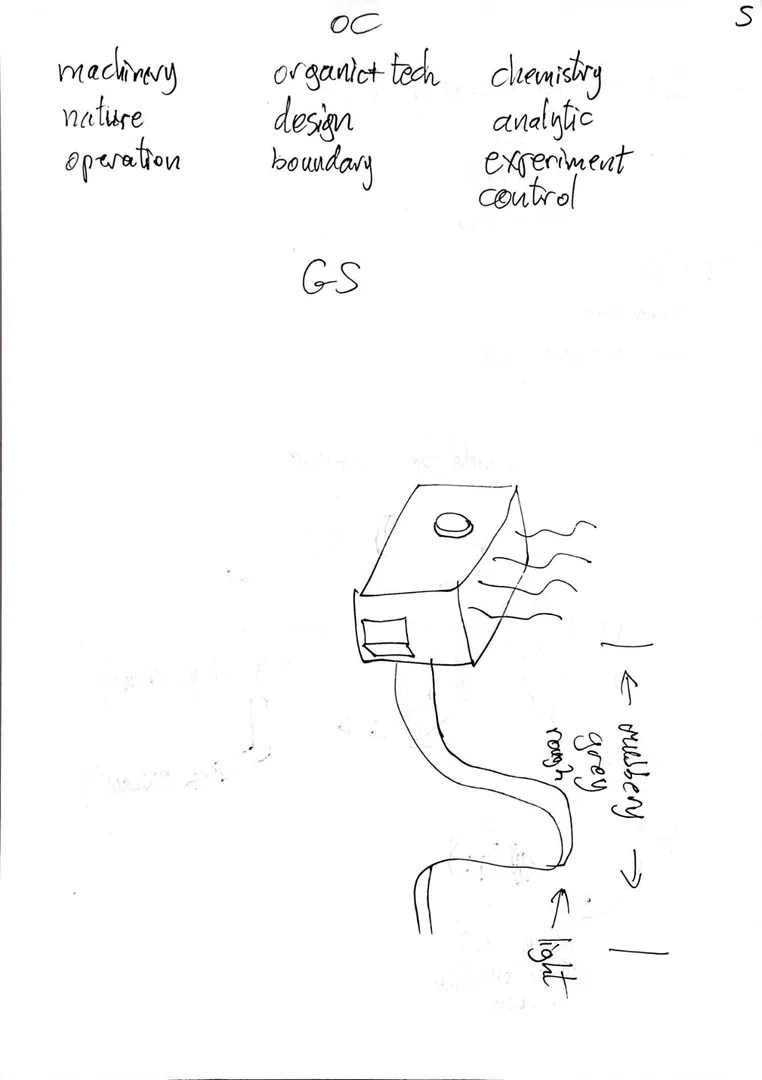 OC
S
machinery organic+ tech chemistry
nature design analytic
operation boundary experiment
control
GS
← rubbery →
grey
rough
← light